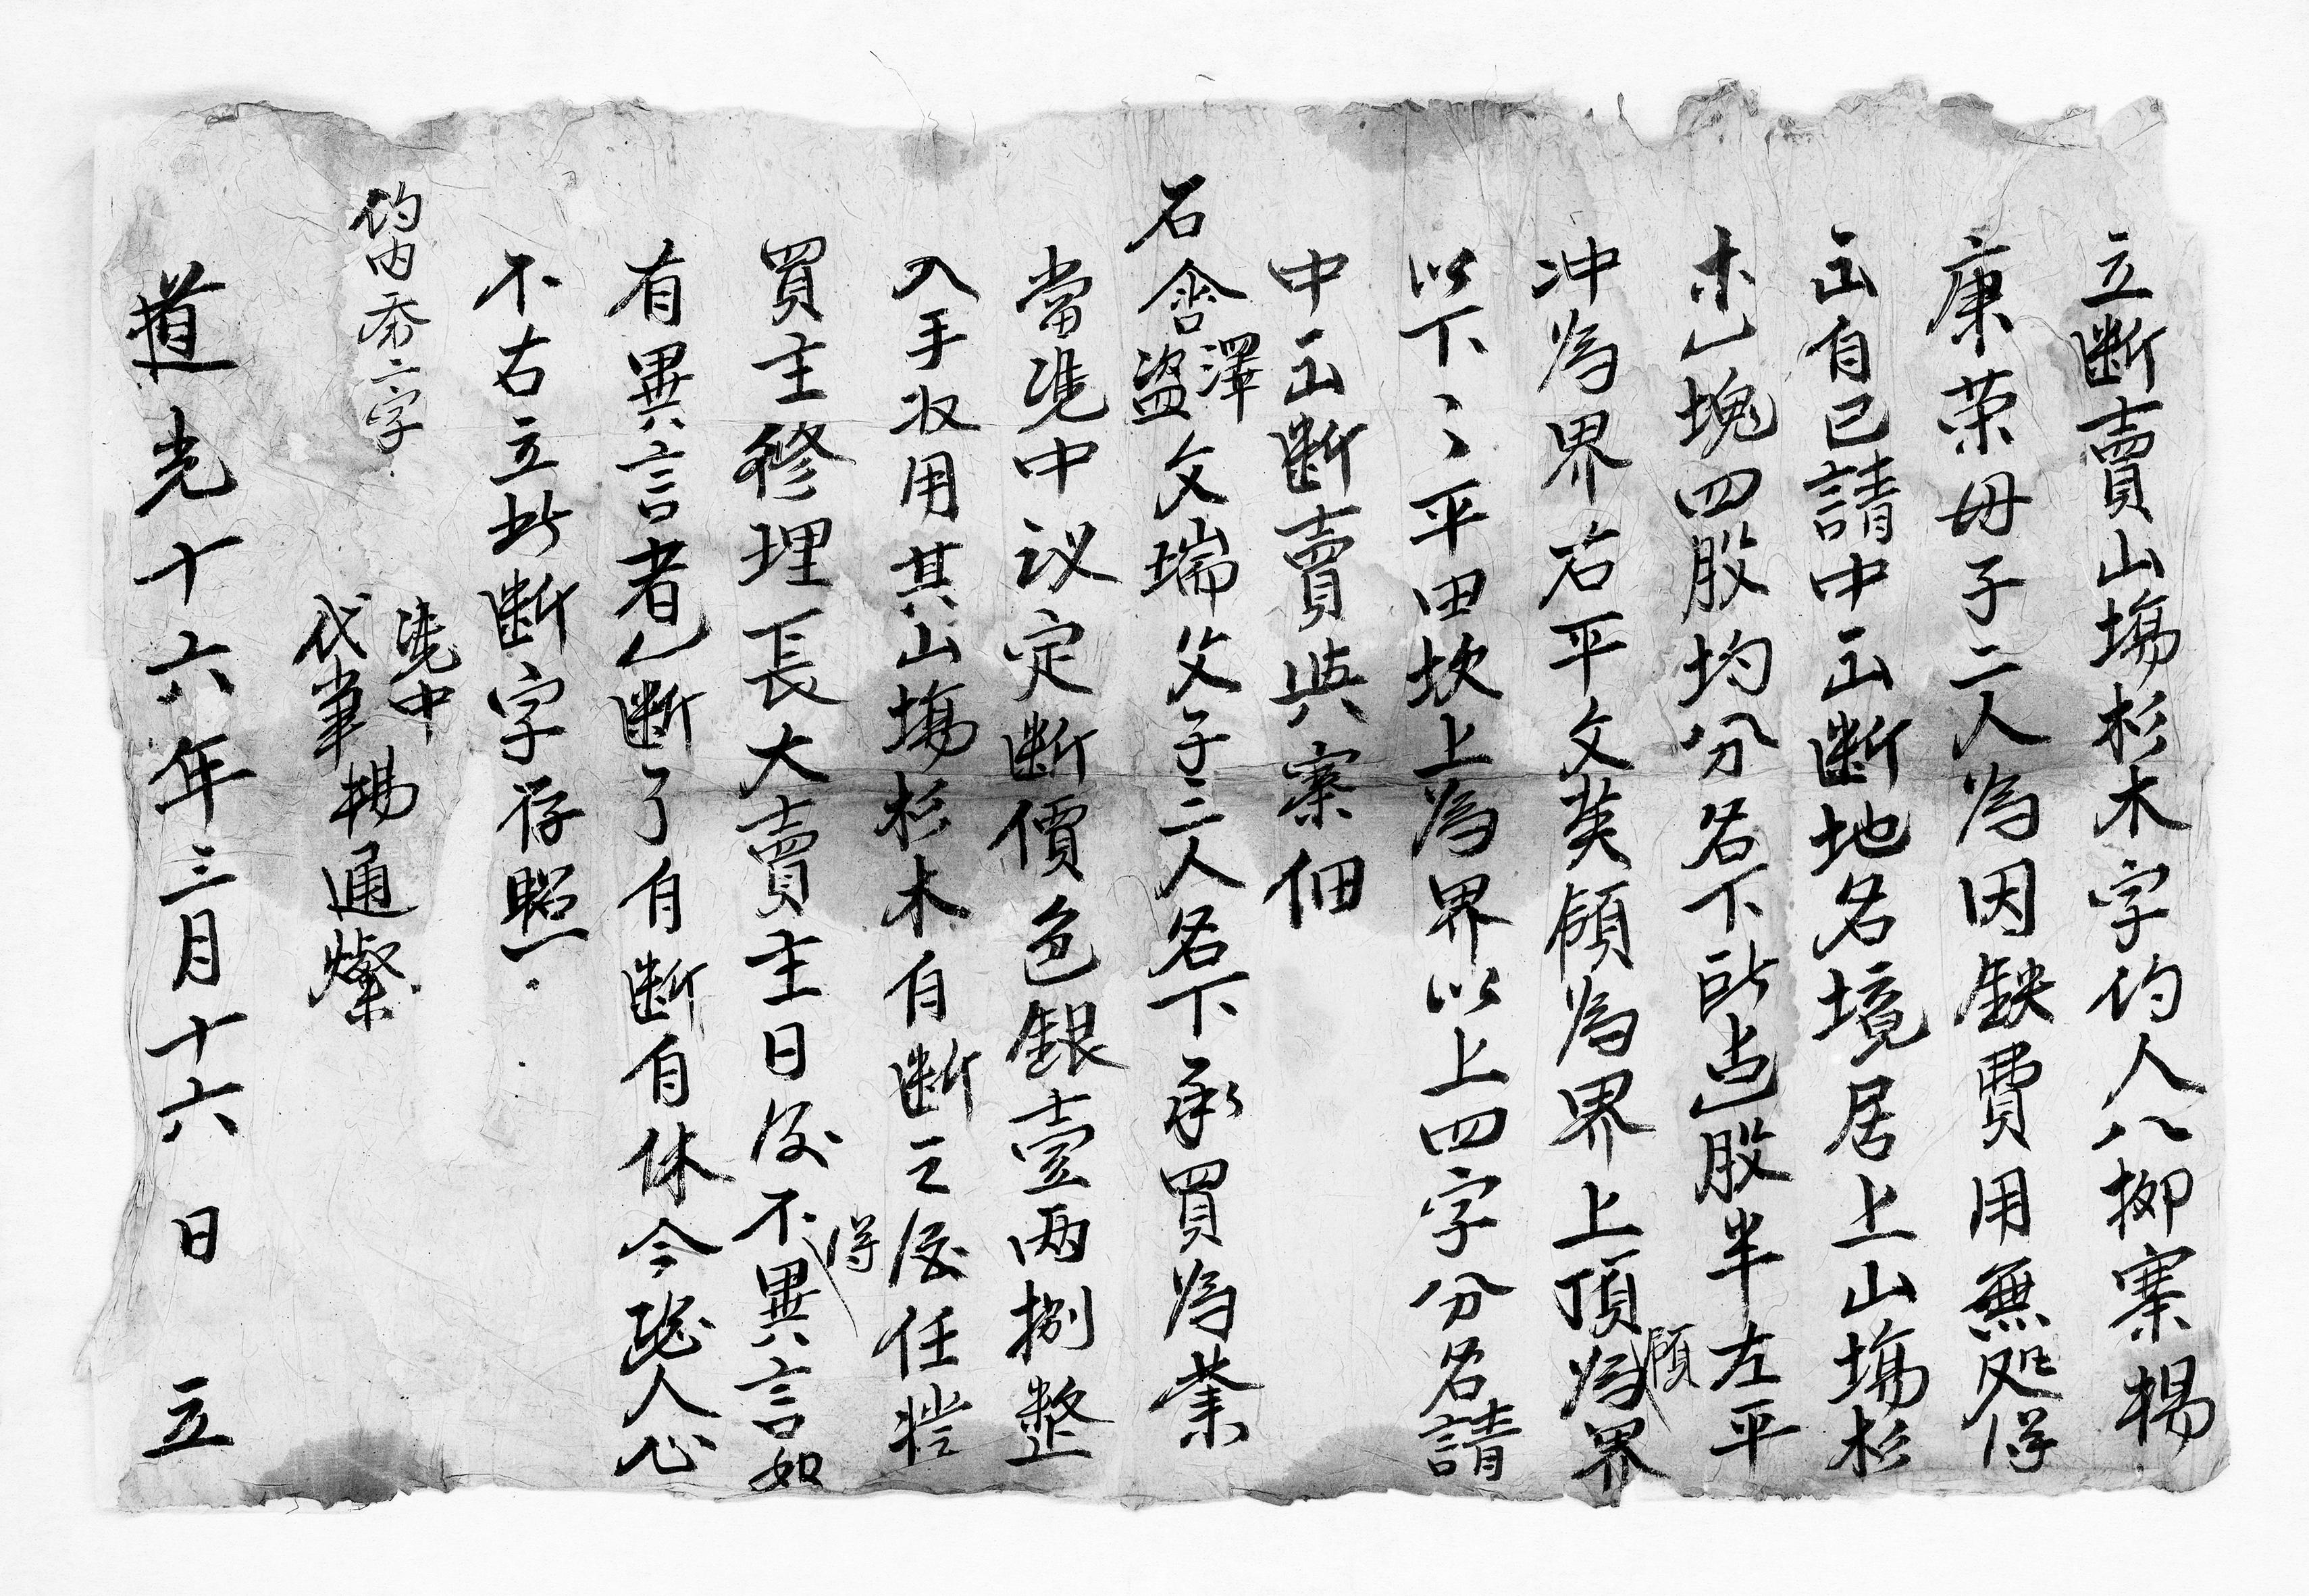 立断賣山塲杉木字约人八挪寨楊
康荣母子二人為因缺費用無処得
出自己請中出断地名境居上山塲杉
木乙塊四股均分名下所占乙股半左平
冲為界右平文英領為界上頂為界
領
以下〻平田坎上為界以上四字分名請
中出断賣與寨佃
石含澤盗文瑞父子二人名下承買為業
當凴中议定断價色銀壹两捌整
入手收用其山塲杉木自断之後任憑
買主修理長大賣主日後不異言如
得
有異言者乙断了自断自休今恐人心
不古立此断字存照
凴中
代筆楊通燦
约内添二字
道光十六年三月十六日 立